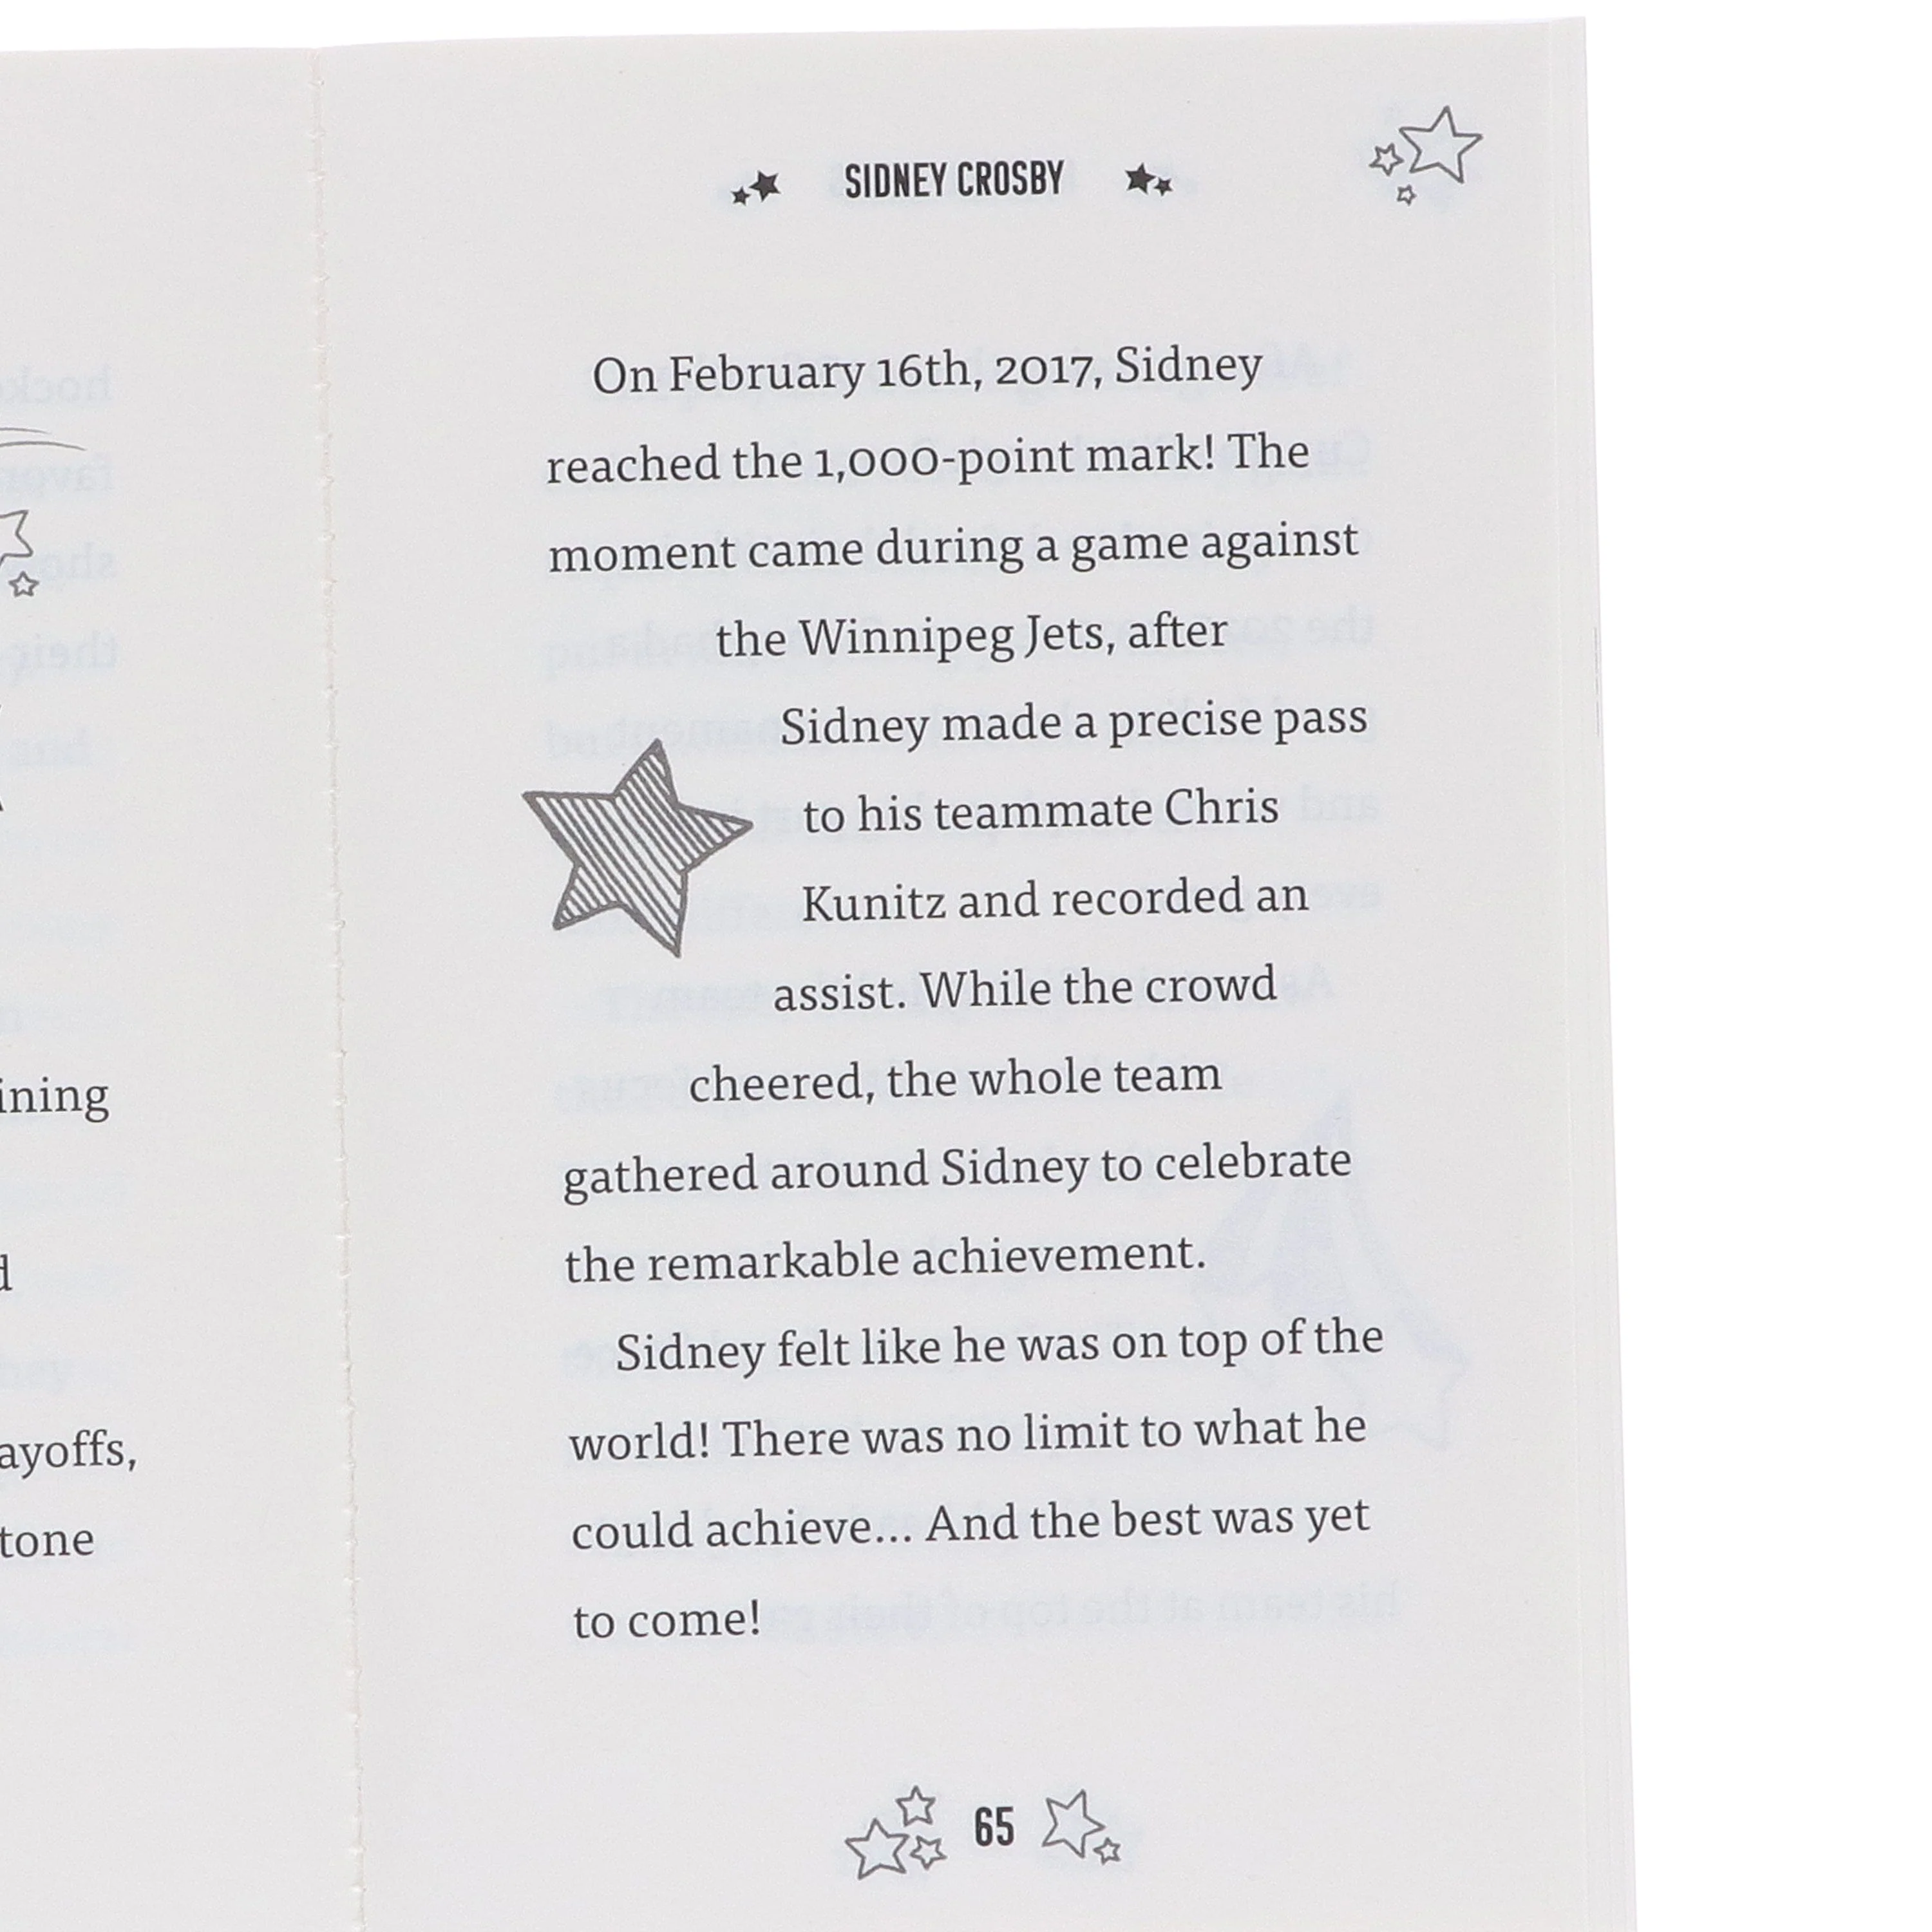 ining
d
ayoffs,
tone
SIDNEY CROSBY
On February 16th, 2017, Sidney
reached the 1,000-point mark! The
moment came during a game against
the Winnipeg Jets, after
Sidney made a precise pass
to his teammate Chris
Kunitz and recorded an
assist. While the crowd
cheered, the whole team
gathered around Sidney to celebrate
the remarkable achievement.
Sidney felt like he was on top of the
world! There was no limit to what he
could achieve... And the best was yet
to come!
65